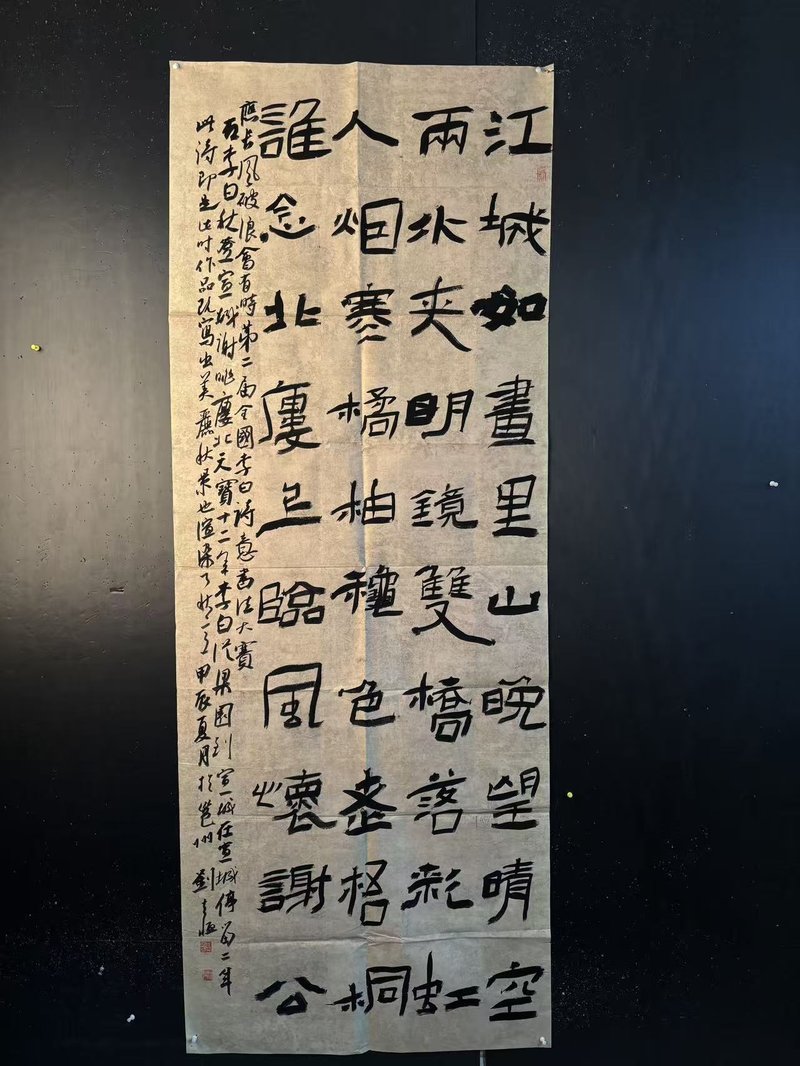 江城如畫里山晚望晴空
兩水夾明鏡雙橋落彩虹
人烟寒橘柚穐色老梧桐
誰念北廔上臨風懷謝公
應長風破浪會有時第二届全國李白詩意書法大賽
右李白秋登宣城謝朓廔北天寶十二年李白從梁園到宣城在宣城停留二年
此诗即是此时作品既寫出美麗秋景也渲染了秋意甲辰夏月於邕州劉